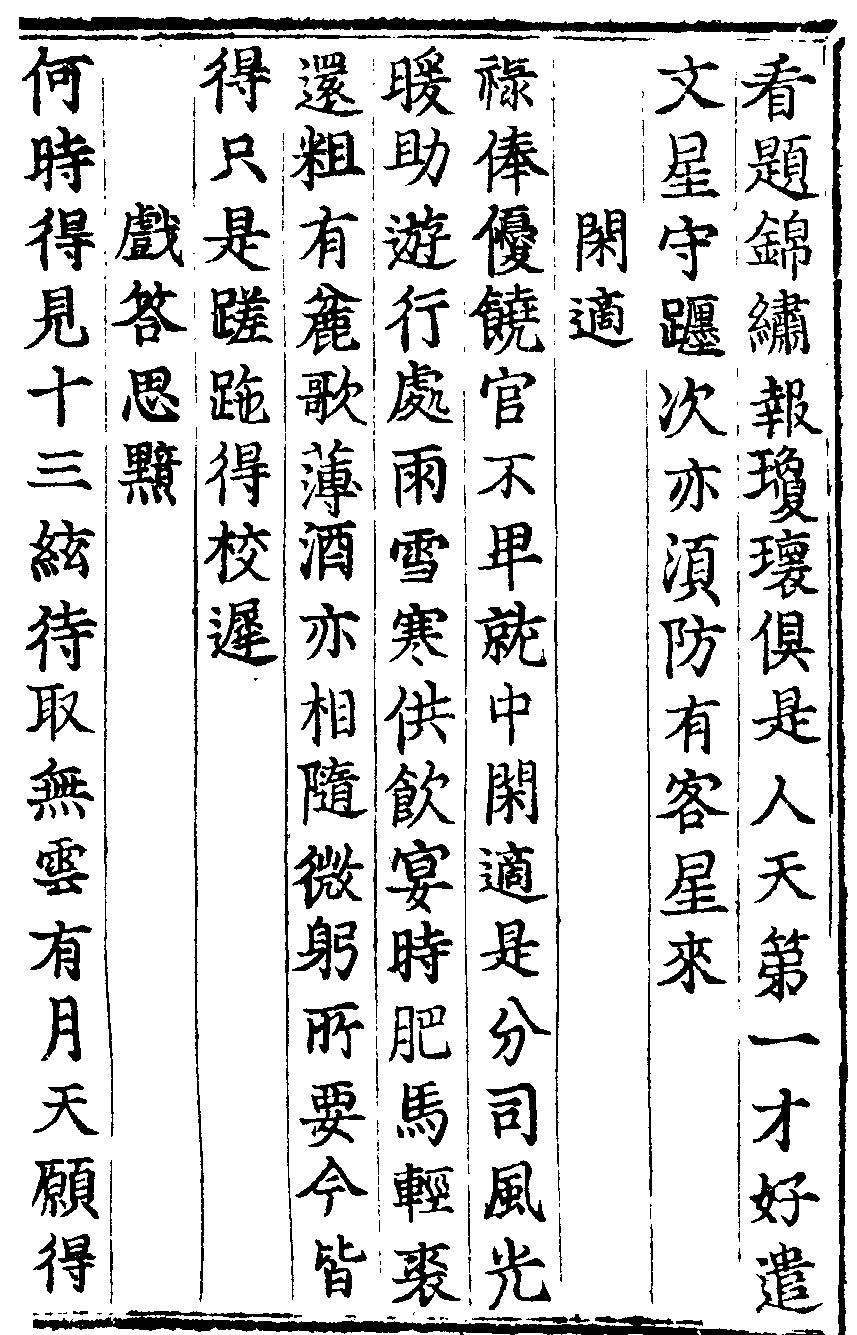 看題錦繡報瓊瓌俱是人天第一才好遣
文星守躔次亦湏防有客星來
閑適
祿俸優饒官不卑就中閑適是分司風光
暖助遊行處雨雪寒供飲宴時肥馬輕裘
還粗有麁歌薄酒亦相隨微躬所要今皆
得只是蹉跎得校遲
戲答思黯
何時得見十三絃待取無雲有月天願得